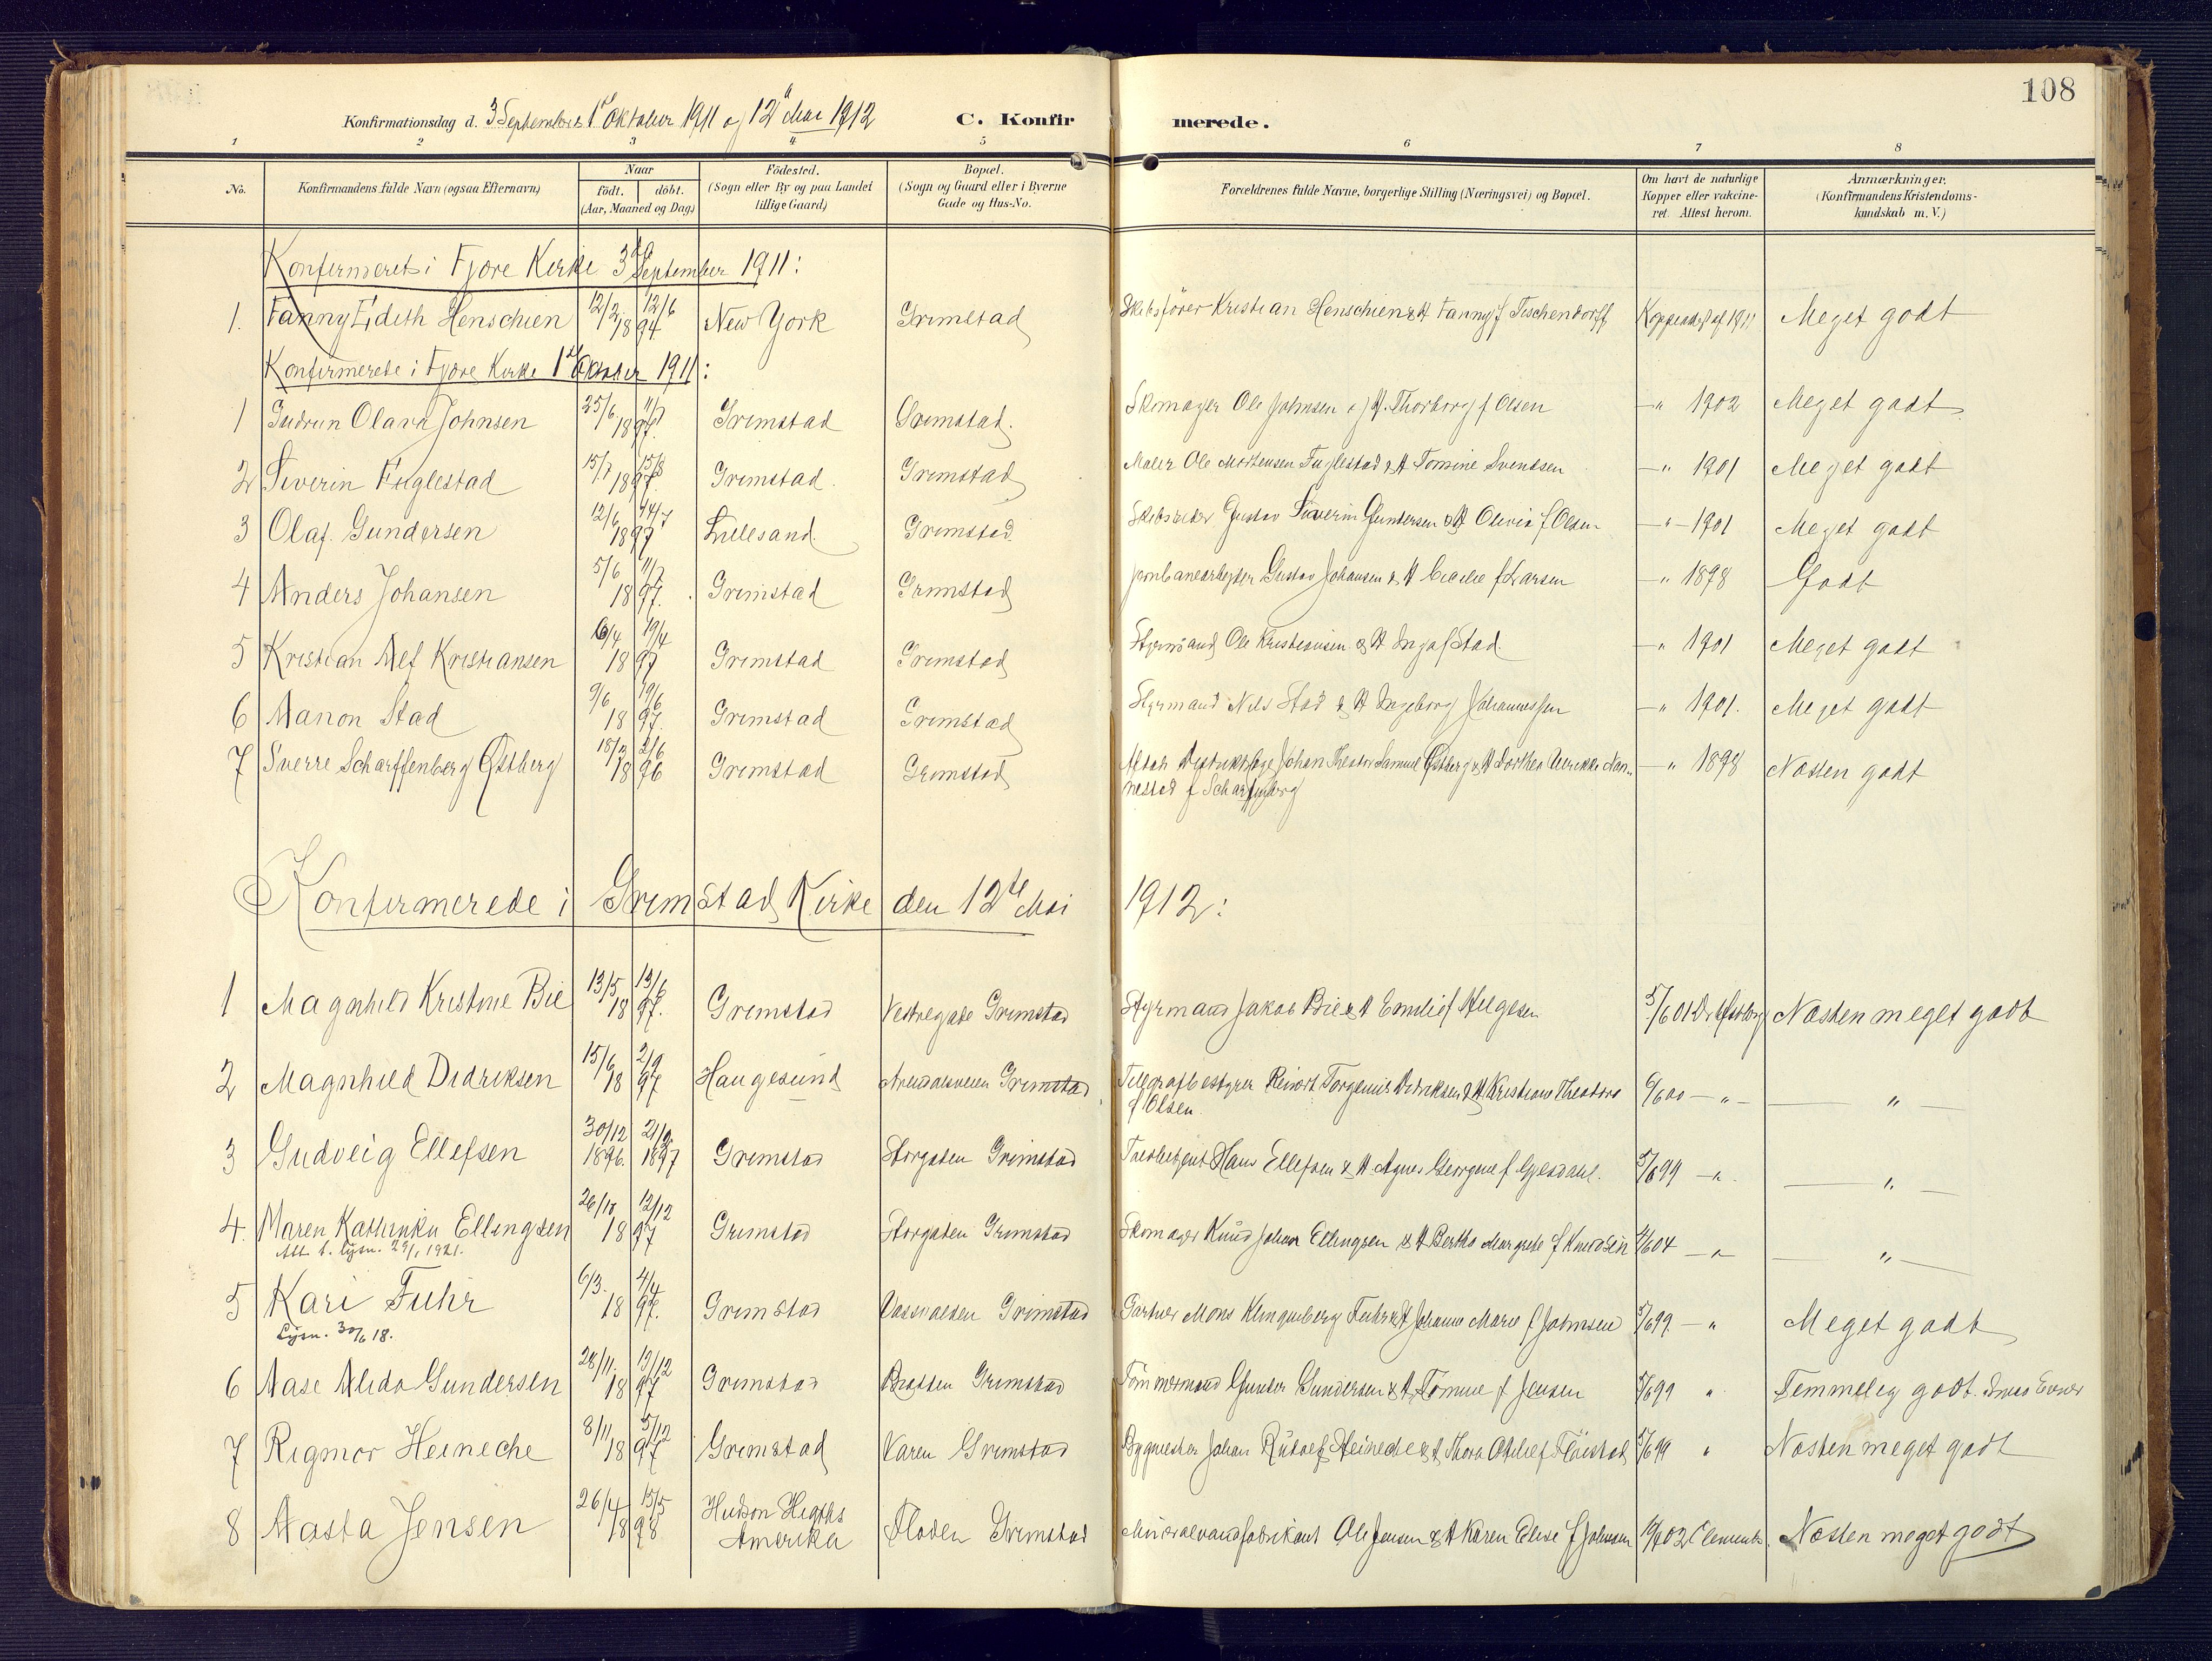 108
Konfirmationsdag d. 3 September 1 Oktober 1911 og 12 Mai 1912 C. Konfir merede.
1 2 3 4 5 6 7 8
No. Konfirmandens fulde Navn (ogsaa Efternavn) Naar födt. döbt. (Aar, Maaned og Dag) Födested. (Sogn eller By og paa Landet tillige Gaard) Bopæl. (Sogn og Gaard eller i Byerne Gade og Hus-No. Forældrenes fulde Navne, borgerlige Stilling (Næringsvei) og Bopæl. Om havt de naturlige Kopper eller vakcineret. Attest herom. Anmærkninger. (Konfirmandens Kristendomskundskab m. V.)
Konfirmeret i Fjære Kirke 3die September 1911:
1. Fanny Edith Henschien 12/2 12/6 1894 New York Grimstad Skibsförer Kristian Henschien & H Fanny f Tischendorff Meget godt
Konfirmerede i Fjære Kirke 1ste Oktober 1911:
1 Gudrun Olava Johnsen 25/6 11/7 1897. Grimstad Grimstad. Skomager Ole Johnsen og H. Thorborg f Olsen —"— 1902 Meget godt
2 Severin Fuglestad 15/7 15/8 1897 Grimstad. Grimstad Maler Ole Mortensen Fuglestad & H Tomine Svendsen —"— 1901 Meget godt
3 Olaf Gundersen 12/6 14/7 1897 Lillesand. Grimstad. Skibsreder Gustav Severin Gundersen & H Olivia f Olsen —"— 1901 Meget godt
4 Anders Johansen 5/6 11/7 1897. Grimstad Grimstad Jernbanearbeider Gustav Johansen & H f Larsen —" 1898 Godt
5 Kristian Alf Kristiansen 6/4 19/4 1897 Grimstad Grimstad Styrmand Ole Kristiansen & H Inga f Stad. —" 1901 Meget godt
6 Manon Stad 9/6 19/6 1897. Grimstad Grimstad Styrmand Nils Stad & H Ingeborg Johannessen —" 1901. Meget godt
7 Sverre Scharffenberg Østberg 18/3 2/6 1896 Grimstad Grimstad Afdøde Distriktslæge Johan Theodor Samuel Østberg & H Dorthea Ulrikke Nan-
nestad f Scharffenberg —" 1898 Næsten godt
Konfirmerede i Grimstad Kirke den 12te Mai 1912:
1 Magnhild Kristine Bie 13/5 13/6 1897. Grimstad Vestregade Grimstad Styrmand Jakob Bie & H Emilie f Helgesen 5/6 01 Dr Østberg Næsten meget godt
2 Magnhild Didriksen 15/6 2/9 1897 Haugesund Arendalsveien Grimstad Telegrafbestyrer Reinort Torgeirius Didriksen & H Kristiane Theodora
f Olsen 6/6 00 —"— —"—
3 Gudveig Ellefsen 30/12 1896. 21/2 1897 Grimstad Storgaden Grimstad Hans Ellefsen & H Agnes Georgine f Gjesdahl. 5/6 99 —"— —"—
4. Maren Kathinka Ellingsen 26/10 12/12 1897 Grimstad Storgaden Grimstad Skomager Knud Johan Ellingsen & H Bertha Margrete f Knudsen 4/6 04 —"— —"—
Att. t. lysn. 29/1 1921.
5 Kari Fuhr 6/3. 4/4 1897. Grimstad Vasshaven Grimstad Gartner Mons Klingenberg Fuhr & H Johanne Marie f Johnsen 5/6 99. —" Meget godt
Lysn. 30/6 18.
6 Aase Alida Gundersen 28/11. 19/12 1897 Grimstad Bratten Grimstad Tömmermand Gunder Gundersen & H Tomine f Jensen 5/6 99 " Temmelig godt. smaa Evner
7 Rigmor Heineche 8/11 5/12 1897 Grimstad Varen Grimstad Bygmester Johan Rudolf Heineche & H Thora Otilie f Flöistad 5/6 99 " Næsten meget godt
8 Aasta Jensen 26/4 15/5 1898 Hudson Hegths
Amerika Floden Grimstad Mineralvandfabrikant Ole Jensen & H Karen Elise f Johnsen Næsten meget godt